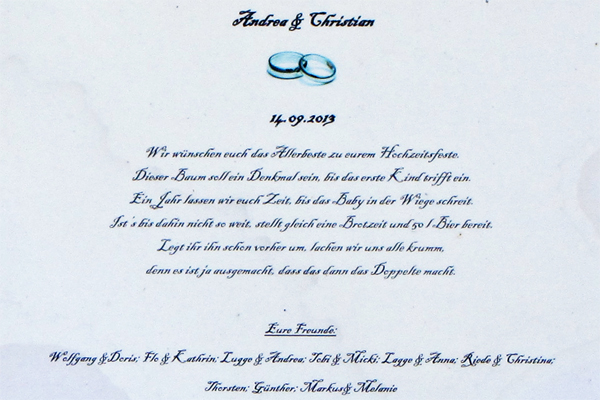 Andrea & Christian
14.09.2013
Wir wünschen euch das Allerbeste zu eurem Hochzeitsfeste.
Dieser Baum soll ein Denkmal sein, bis das erste Kind trifft ein.
Ein Jahr lassen wir euch Zeit, bis das Baby in der Wiege schreit.
Ist's bis dahin nicht so weit, stellt gleich eine Brotzeit und 50 l Bier bereit.
Legt ihr ihn schon vorher um, lachen wir uns alle krumm,
denn es ist ja ausgemacht, dass das dann das Doppelte macht.
Eure Freunde:
Wolfgang & Doris; Flo & Kathrin; Lugge & Andrea; Tobi & Micki; Lagge & Anna; Riede & Christina;
Thorsten; Günther; Markus & Melanie